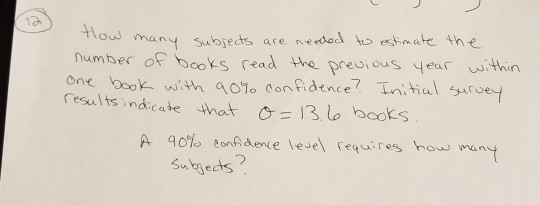 12
How many subjects are needed to estimate the
number of books read the previous year within
one book with 90% confidence? Initial survey
results indicate that σ = 13.6 books.
A 90% confidence level requires how many
subjects?